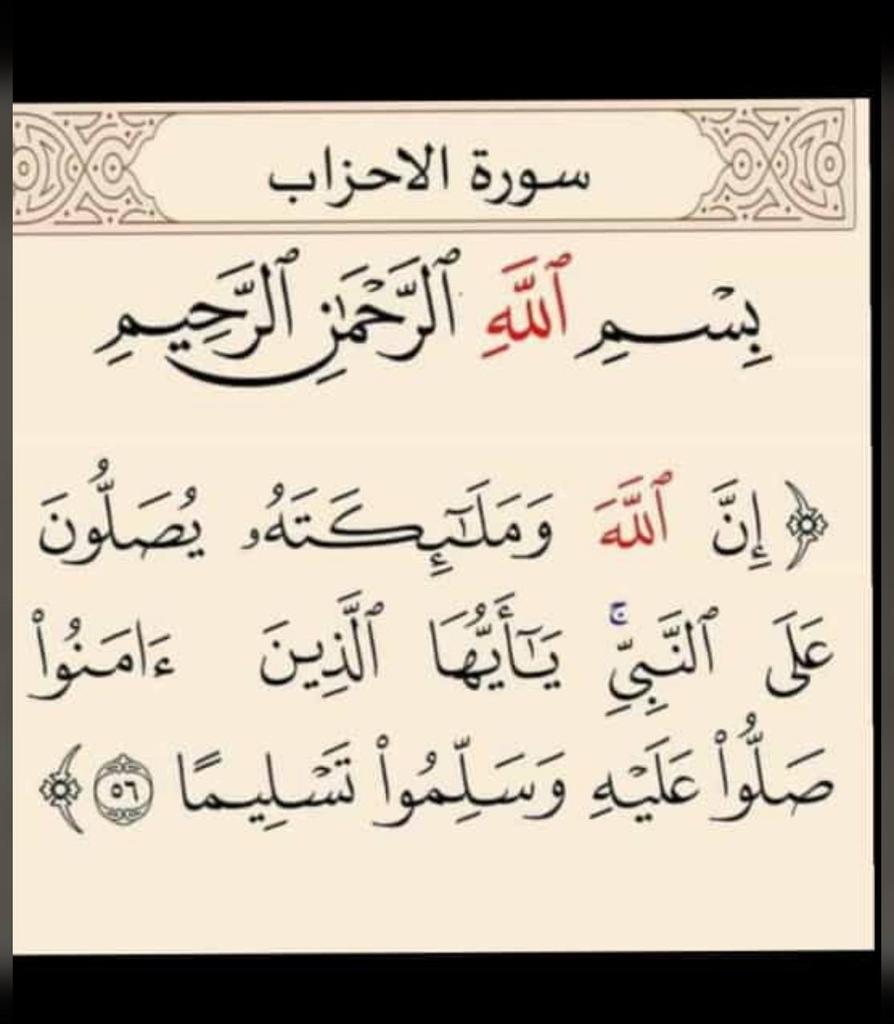 سورة الاحزاب
بِسْمِ ٱللَّهِ ٱلرَّحْمَٰنِ ٱلرَّحِيمِ
﴿ إِنَّ ٱللَّهَ وَمَلَـٰٓئِكَتَهُۥ يُصَلُّونَ
عَلَى ٱلنَّبِيِّ ۚ يَـٰٓأَيُّهَا ٱلَّذِينَ ءَامَنُوا۟
صَلُّوا۟ عَلَيْهِ وَسَلِّمُوا۟ تَسْلِيمًا ٥٦ ﴾